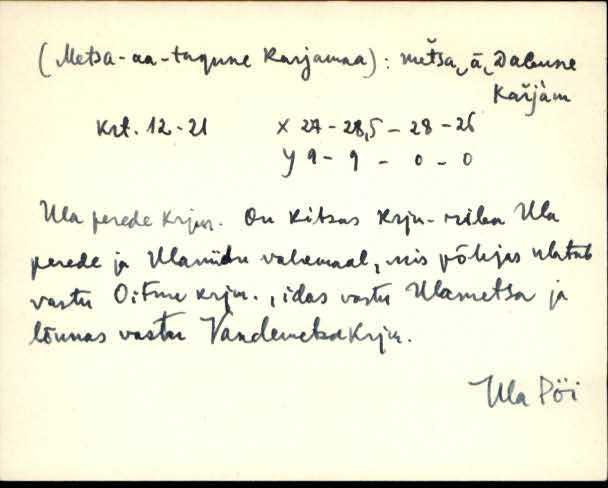 (Metsa-aa-tagune Karjamaa): mètsa‿ā‿Daɢune
Kaŕjàm
Krt. 12-21 X 27 - 28,5 - 28 - 26
Y 9 - 9 - 0 - 0
Ula perede krjm. On kitsas krjm-riba Ula
perede ja Ulaniidu vahemaal, mis põhjas ulatub
vastu Oitme krjm., idas vastu Ulametsa ja
lõunas vastu Vandemetsa krjm.
Ula Pöi